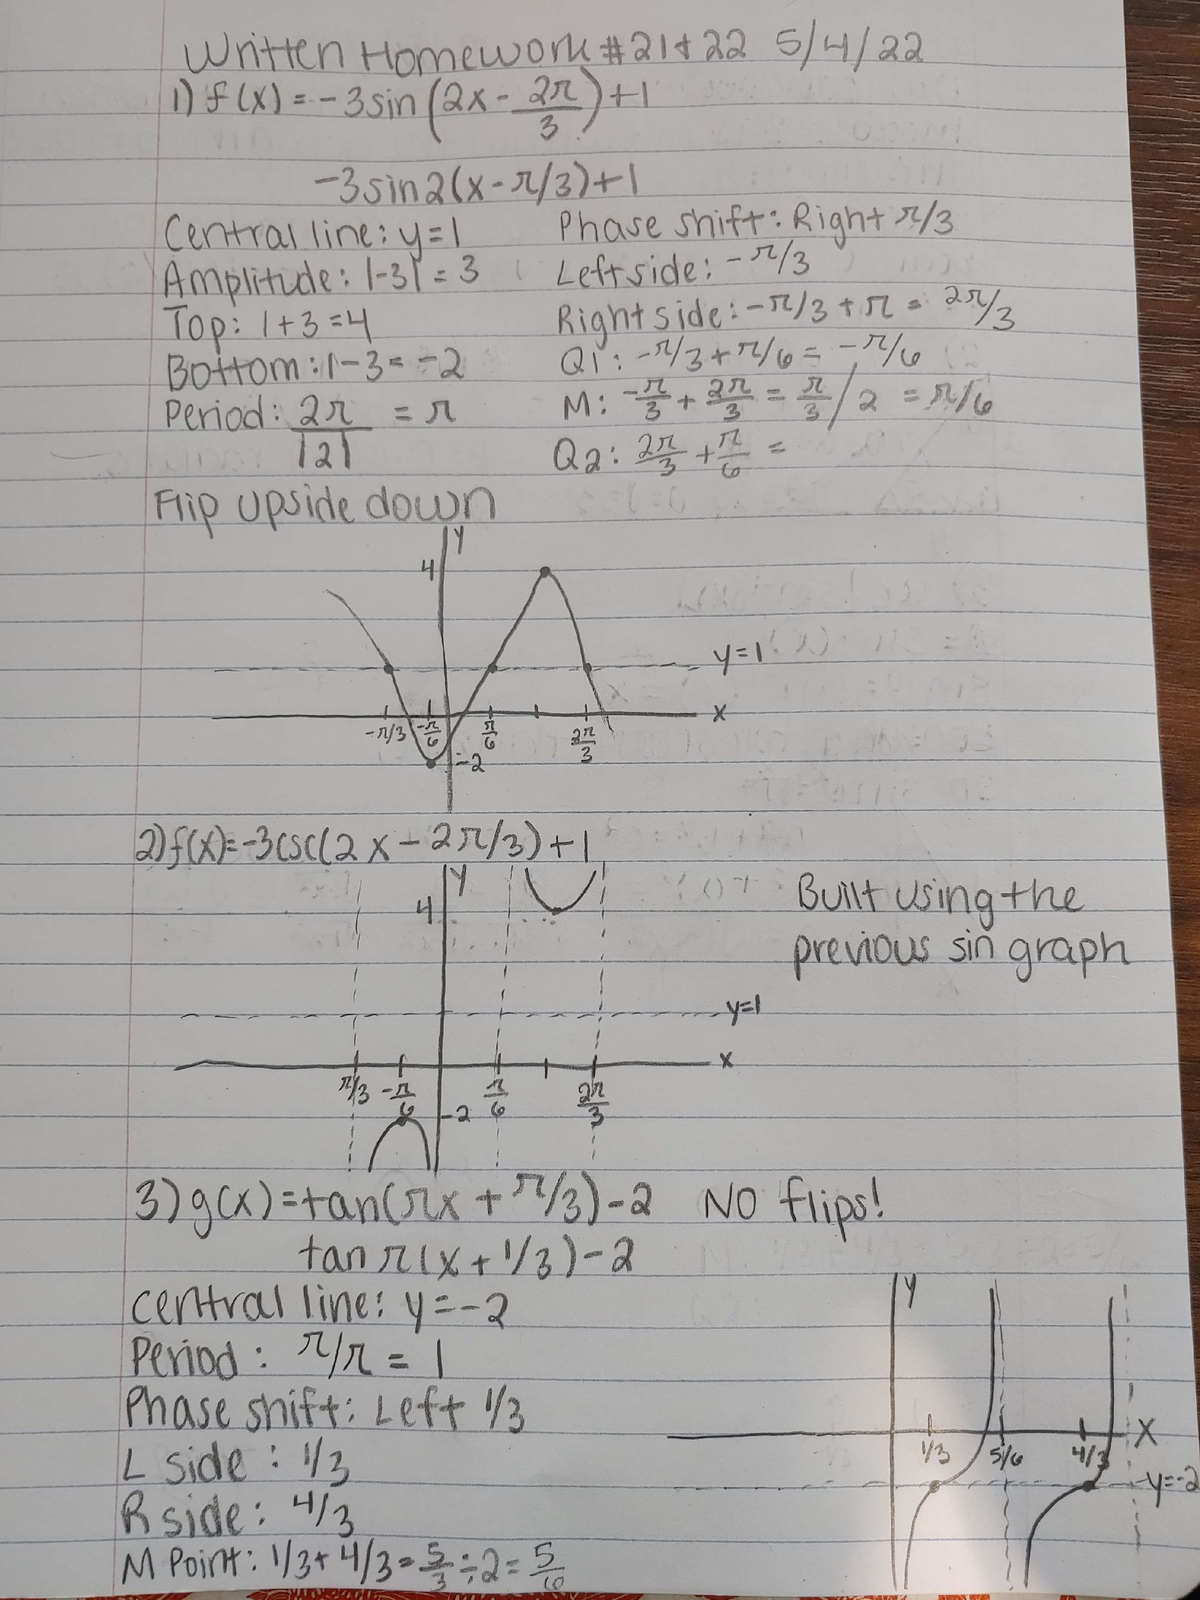 Written Homework #21+22 5/4/22
1) f(x) = -3sin(2x - 2π/3) + 1
-3sin2(x-π/3)+1
Central line: y=1
Amplitude: |-3| = 3
Top: 1+3=4
Bottom: 1-3 = -2
Period: 2π/|2| = π
Phase shift: Right π/3
Left side: -π/3
Right side: -π/3 + π = 2π/3
Q1: -π/3 + π/6 = -π/6
M: -π/3 + 2π/3 = π/3 / 2 = π/6
Q2: 2π/3 + π/6 =
Flip upside down
y
4
y=1
x
-π/3 -π/6 π/6 2π/3
-2
2) f(x)=-3csc(2x-2π/3)+1
y
4
Built using the
previous sin graph
y=1
x
π/3 -π/6 π/6 2π/3
-2
3) g(x)=tan(πx + π/3)-2 NO flips!
tan π(x + 1/3)-2
central line: y=-2
Period: π/π = 1
Phase shift: Left 1/3
L side: 1/3
R side: 4/3
M Point: 1/3 + 4/3 = 5/3 ÷ 2 = 5/6
y
x
1/3 5/6 4/3
y=-2